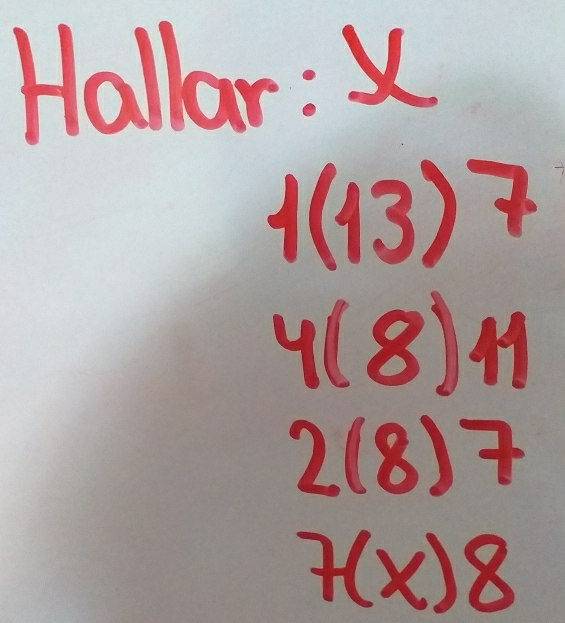 Hallar: X
1(13)7
4(8)11
2(8)7
7(x)8